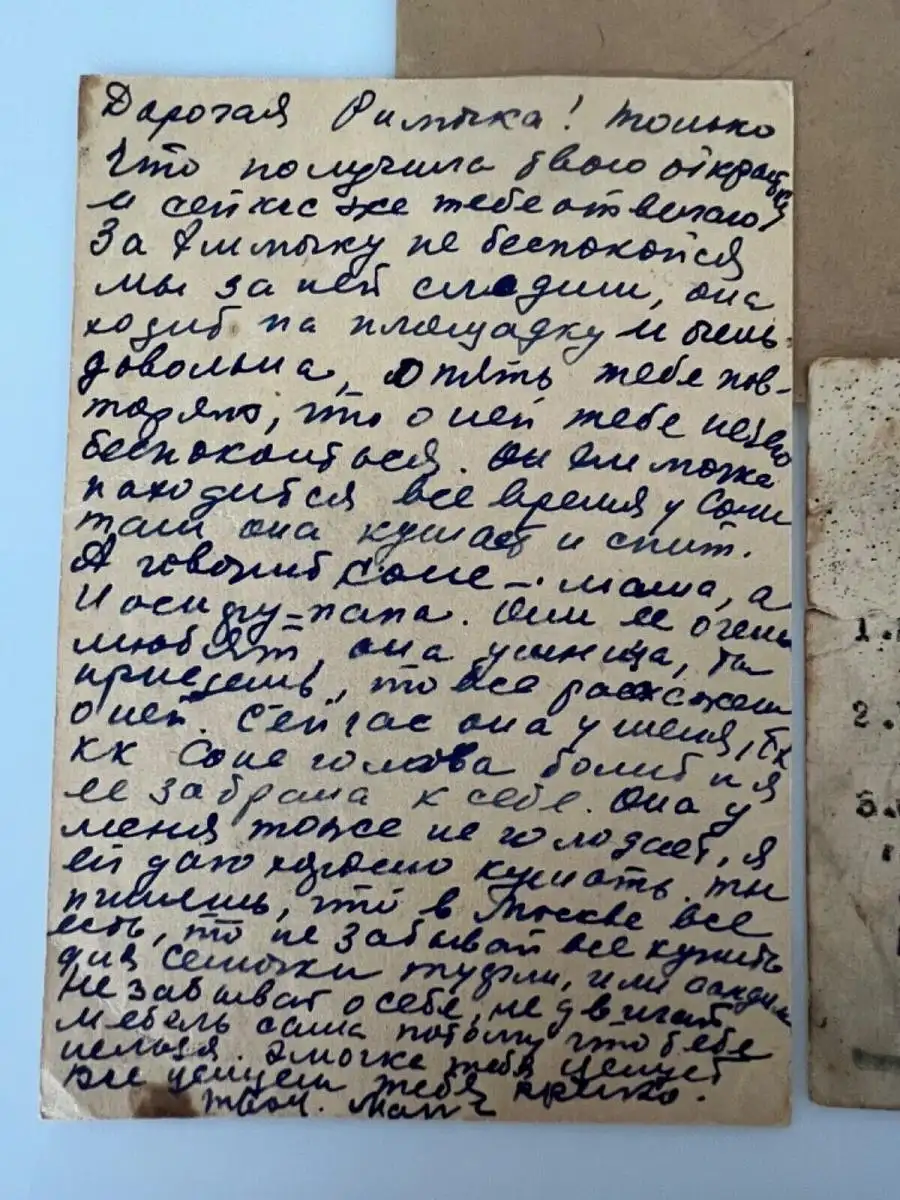 Дорогая Римочка! Только
что получила твою открытку
и сейчас же тебе отвечаю
За Эммочку не беспокойся
мы за ней следим, она
ходит на площадку и очень
довольна, опять тебе пов-
торяю, что о ней тебе нечего
беспокоиться. Он
находится все время у Сони
там она кушает и спит.
А говорит Соне - мама, а
Иосифу - папа. Они ее очень
любят, она умница, ты
приедешь, то все расскажем
о ней. Сейчас она у меня, т
кк Соне голова болит и я
ее забрала к себе. Она у
меня тоже не голодает, я
ей даю хорошо кушать. ты
пишешь, что в Москве все
есть, то не забывай все купить
для туфли, или сандали
не забывай о себе, не двигай
мебель сама потому что тебе
нельзя. Эмочка тебя целует
все целуем тебя крепко.
твоя. Мама
1.
2.
3.